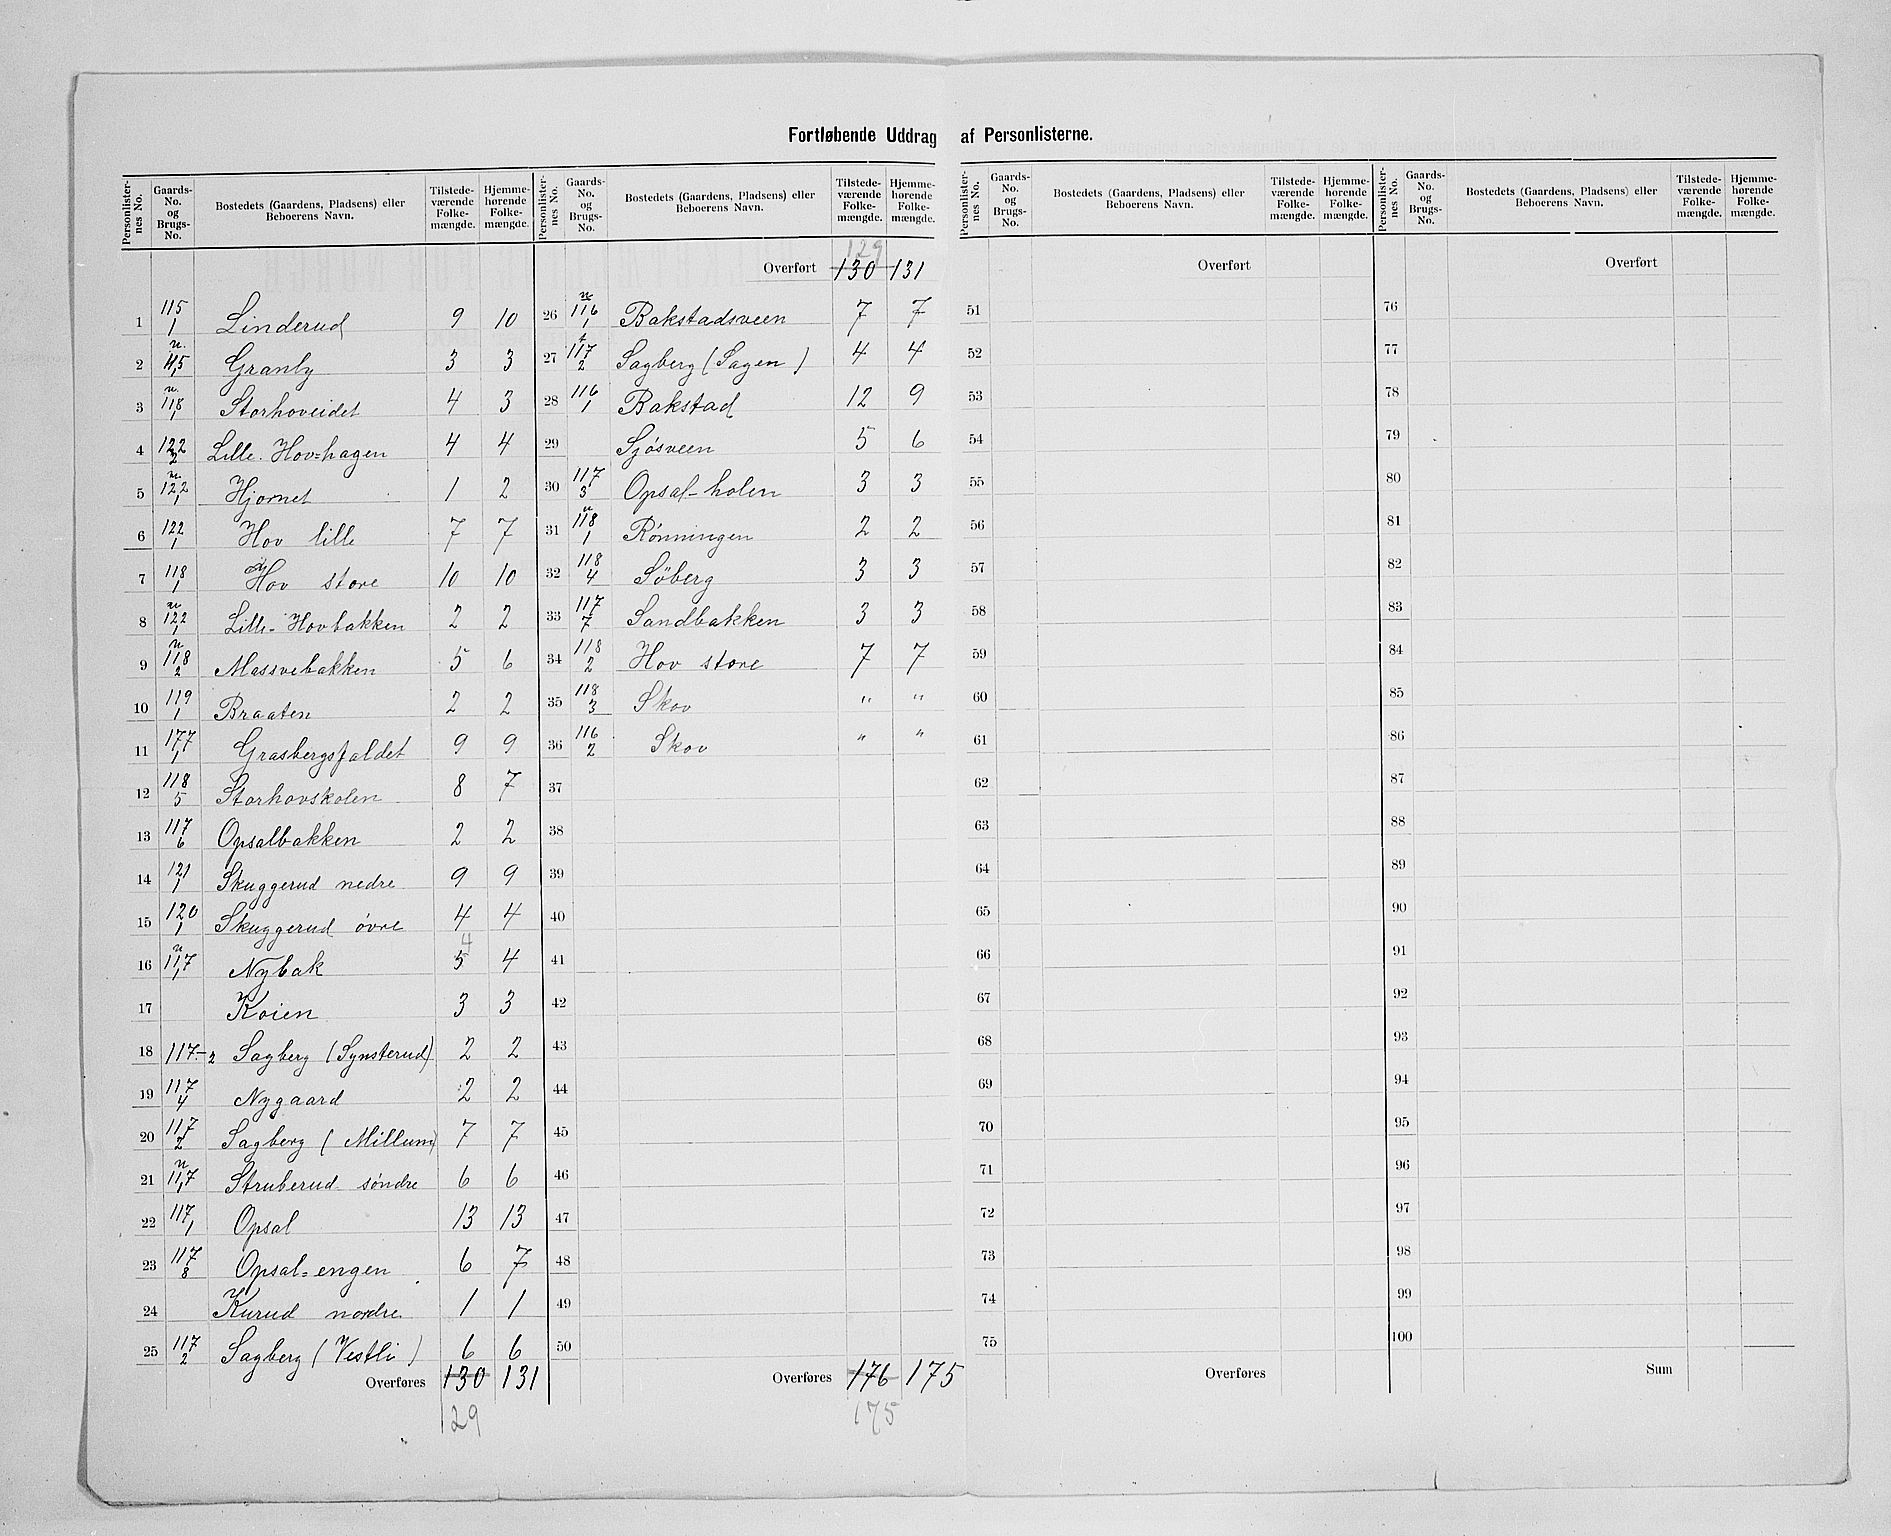 Fortløbende Uddrag af Personlisterne.
Personlisternes No. | Gaards-No. og Brugs-No. | Bostedets (Gaardens, Pladsens) eller Beboerens Navn. | Tilstedeværende Folkemængde. | Hjemmehørende Folkemængde.
1 | 115/1 | Linderud | 9 | 10
2 | n. 115/1 | Granby | 3 | 3
3 | n. 118/1 | Storhoveidet | 4 | 3
4 | 122/2 | Lille-Hov=hagen | 4 | 4
5 | n. 122/1 | Hjørnet | 1 | 2
6 | 122/1 | Hov lille | 7 | 7
7 | 118/1 | Hov store | 10 | 10
8 | n 122/1 | Lille-Hovbakken | 2 | 2
9 | n 118/2 | Massvebakken | 5 | 6
10 | 119/1 | Braaten | 2 | 2
11 | 177/1 | Grasbergsfaldet | 9 | 9
12 | 118/5 | Storhovskolen | 8 | 7
13 | 117/6 | Opsalbakken | 2 | 2
14 | 121/1 | Skuggerud nedre | 9 | 9
15 | 120/1 | Skuggerud övre | 4 | 4
16 | n 117/1 | Nybak | 5 4 | 4
17 | Koien | 3 | 3
18 | 117-2 | Sagberg (Synsterud) | 2 | 2
19 | 117/4 | Nygaard | 2 | 2
20 | 117/2 | Sagberg (Millum) | 7 | 7
21 | n 117/1 | Struberud söndre | 6 | 6
22 | 117/1 | Opsal | 13 | 13
23 | 117/8 | Opsal=engen | 6 | 7
24 | Kurud nordre | 1 | 1
25 | 117/2 | Sagberg (Vestli) | 6 | 6
Overføres 130 131
129
Personlisternes No. | Gaards-No. og Brugs-No. | Bostedets (Gaardens, Pladsens) eller Beboerens Navn. | Tilstedeværende Folkemængde. | Hjemmehørende Folkemængde.
129
Overført 130 131
26 | n 116/1 | Bakstadsveen | 7 | 7
27 | 117/2 | Sagberg (Sagen) | 4 | 4
28 | 116/1 | Bakstad | 12 | 9
29 | Sjösveen | 5 | 6
30 | 117/3 | Opsal-holen | 3 | 3
31 | n 118/1 | Rönningen | 2 | 2
32 | 118/4 | Söberg | 3 | 3
33 | 117/7 | Sandbakken | 3 | 3
34 | 118/2 | Hov store | 7 | 7
35 | 118/3 | Skov | " | "
36 | 116/2 | Skov | " | "
37
38
39
40
41
42
43
44
45
46
47
48
49
50
Overføres 176 175
175
Personlisternes No. | Gaards-No. og Brugs-No. | Bostedets (Gaardens, Pladsens) eller Beboerens Navn. | Tilstedeværende Folkemængde. | Hjemmehørende Folkemængde.
Overført
51
52
53
54
55
56
57
58
59
60
61
62
63
64
65
66
67
68
69
70
71
72
73
74
75
Overføres
Personlisternes No. | Gaards-No. og Brugs-No. | Bostedets (Gaardens, Pladsens) eller Beboerens Navn. | Tilstedeværende Folkemængde. | Hjemmehørende Folkemængde.
Overført
76
77
78
79
80
81
82
83
84
85
86
87
88
89
90
91
92
93
94
95
96
97
98
99
100
Sum